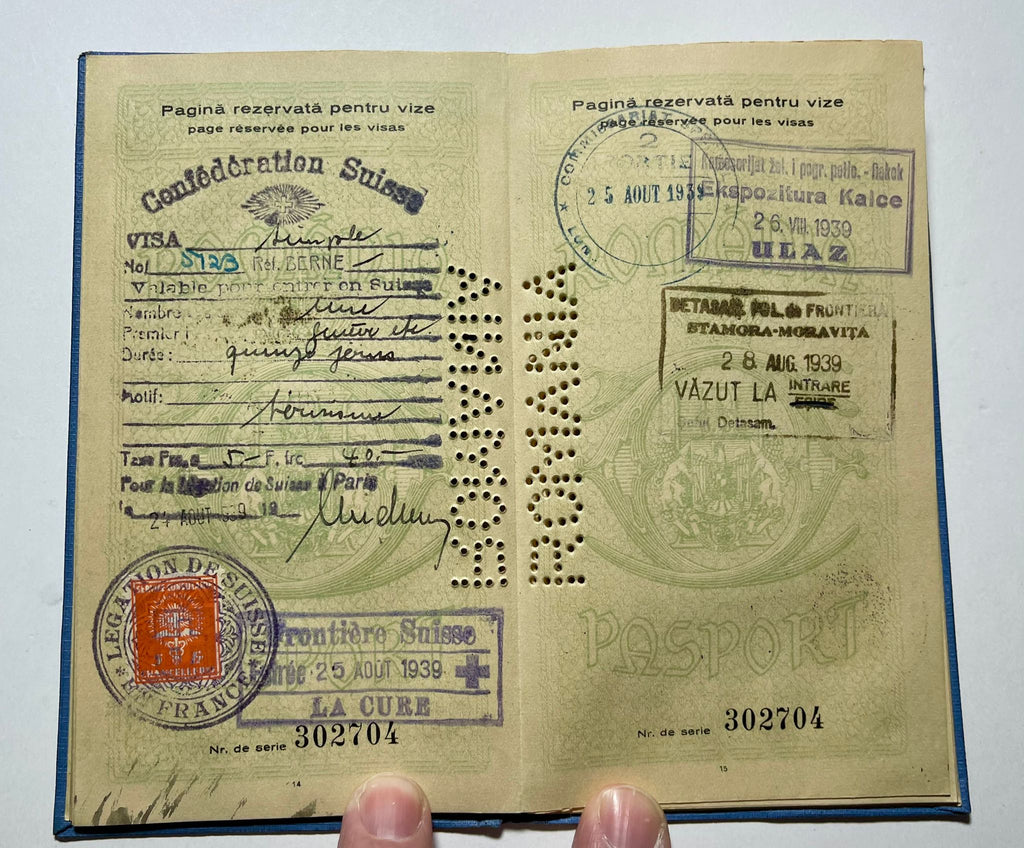 Pagină rezervată pentru vize
page réservée pour les visas
Confédération Suisse
VISA simple
No/ 5723 Réf. BERNE
Valable pour entrer en Suisse
Nombre une
Premier
Durée: quinze jours
Motif:
tourisme
Taxe Frs. s 5.- F. frc. 40.-
Pour la Légation de Suisse à Paris
le 24 AOUT 1939 19
LEGATION DE SUISSE
EN FRANCE
Frontière Suisse
Entrée 25 AOUT 1939
LA CURE
Nr. de serie 302704
14
ROMANIA
Pagină rezervată pentru vize
page réservée pour les visas
COMMISSARIAT
2
SORTIE
25 AOUT 1939
Komesarijat žel. i pogr. polic. - Rakek
Ekspozitura Kalce
26. VIII. 1939
ULAZ
DETASAM. POL. de FRONTIERA
STAMORA-MORAVIȚA
28 AUG. 1939
VĂZUT LA INTRARE
Șeful Detasam.
ROMANIA
ROMÂNIA
PASPORT
Nr. de serie 302704
15